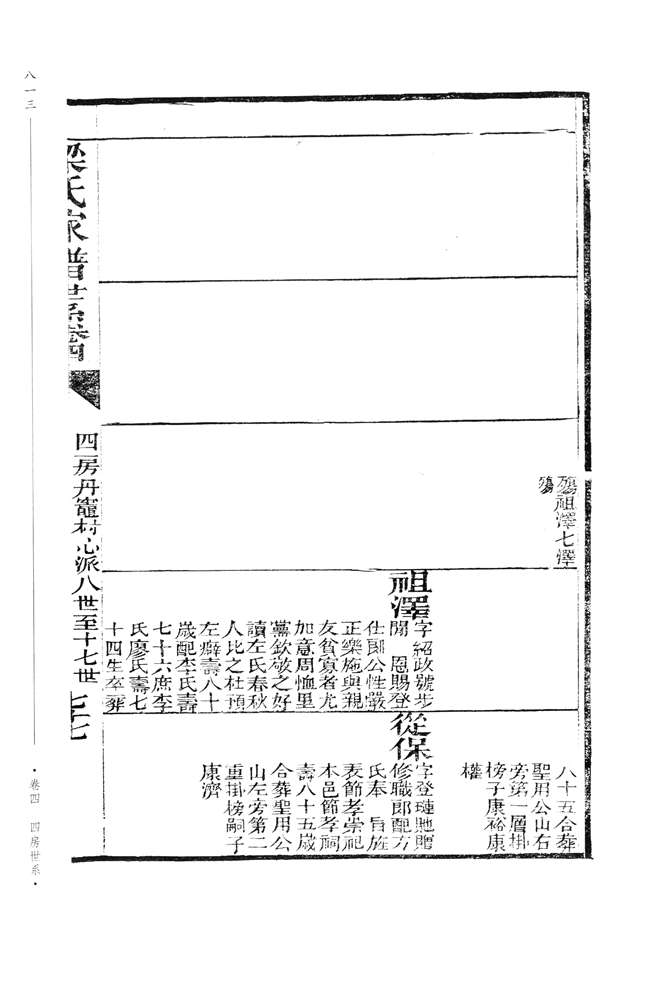 殤祖澤七澤
殤
八十五合葬
聖用公山右
旁第一層掛
榜子康裕康
權
祖澤
字紹政號步
閒　恩賜登
仕郎公性嚴
正樂施與親
友貧寡者尤
加意周恤里
黨欽敬之好
讀左氏春秋
人比之杜預
左癖壽八十
歲配李氏壽
七十六庶李
氏廖氏壽七
十四生卒葬
從保
字登璉貤贈
修職郎配方
氏奉　旨旌
表節孝崇祀
本邑節孝祠
壽八十五歲
合葬聖用公
山左旁第二
重掛榜嗣子
康濟
梁氏家譜世系卷四
四房丹竈村心派八世至十七世
七十七
八一三
卷四　四房世系